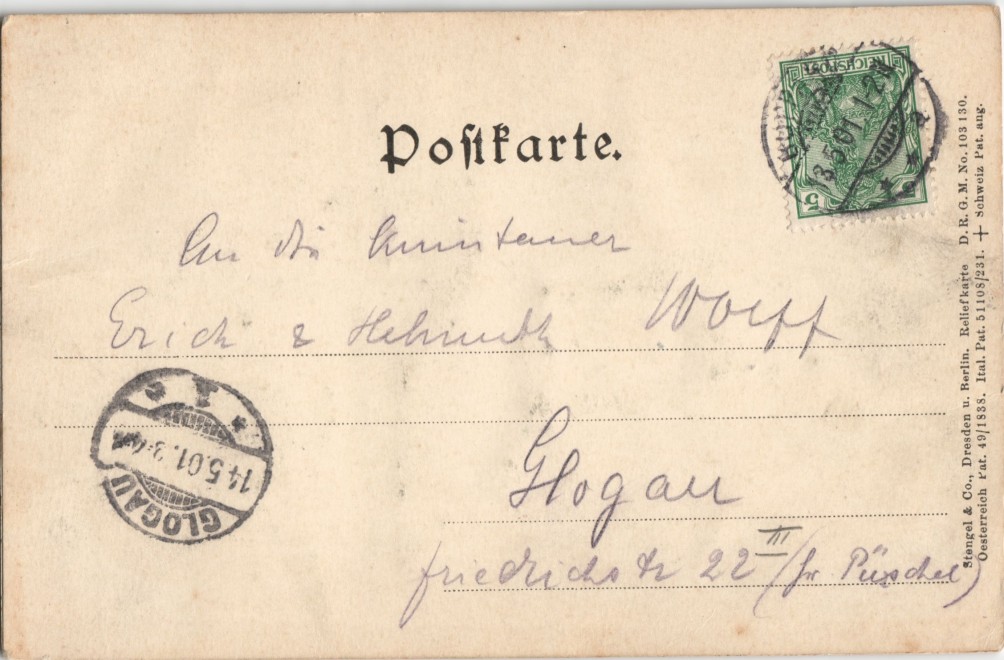 Postkarte.
REICHSPOST
5
13.5.01.1-2N
a
An die
Erich & Helmuth Wolff
Glogau
Friedrichstr 22 III (fr Püschel)
GLOGAU
14.5.01.
Stengel & Co., Dresden u. Berlin. Reliefkarte D. R. G. M. No. 103 130.
Oesterreich Pat. 49/1838. Ital. Pat. 51108/231. + Schweiz Pat. ang.